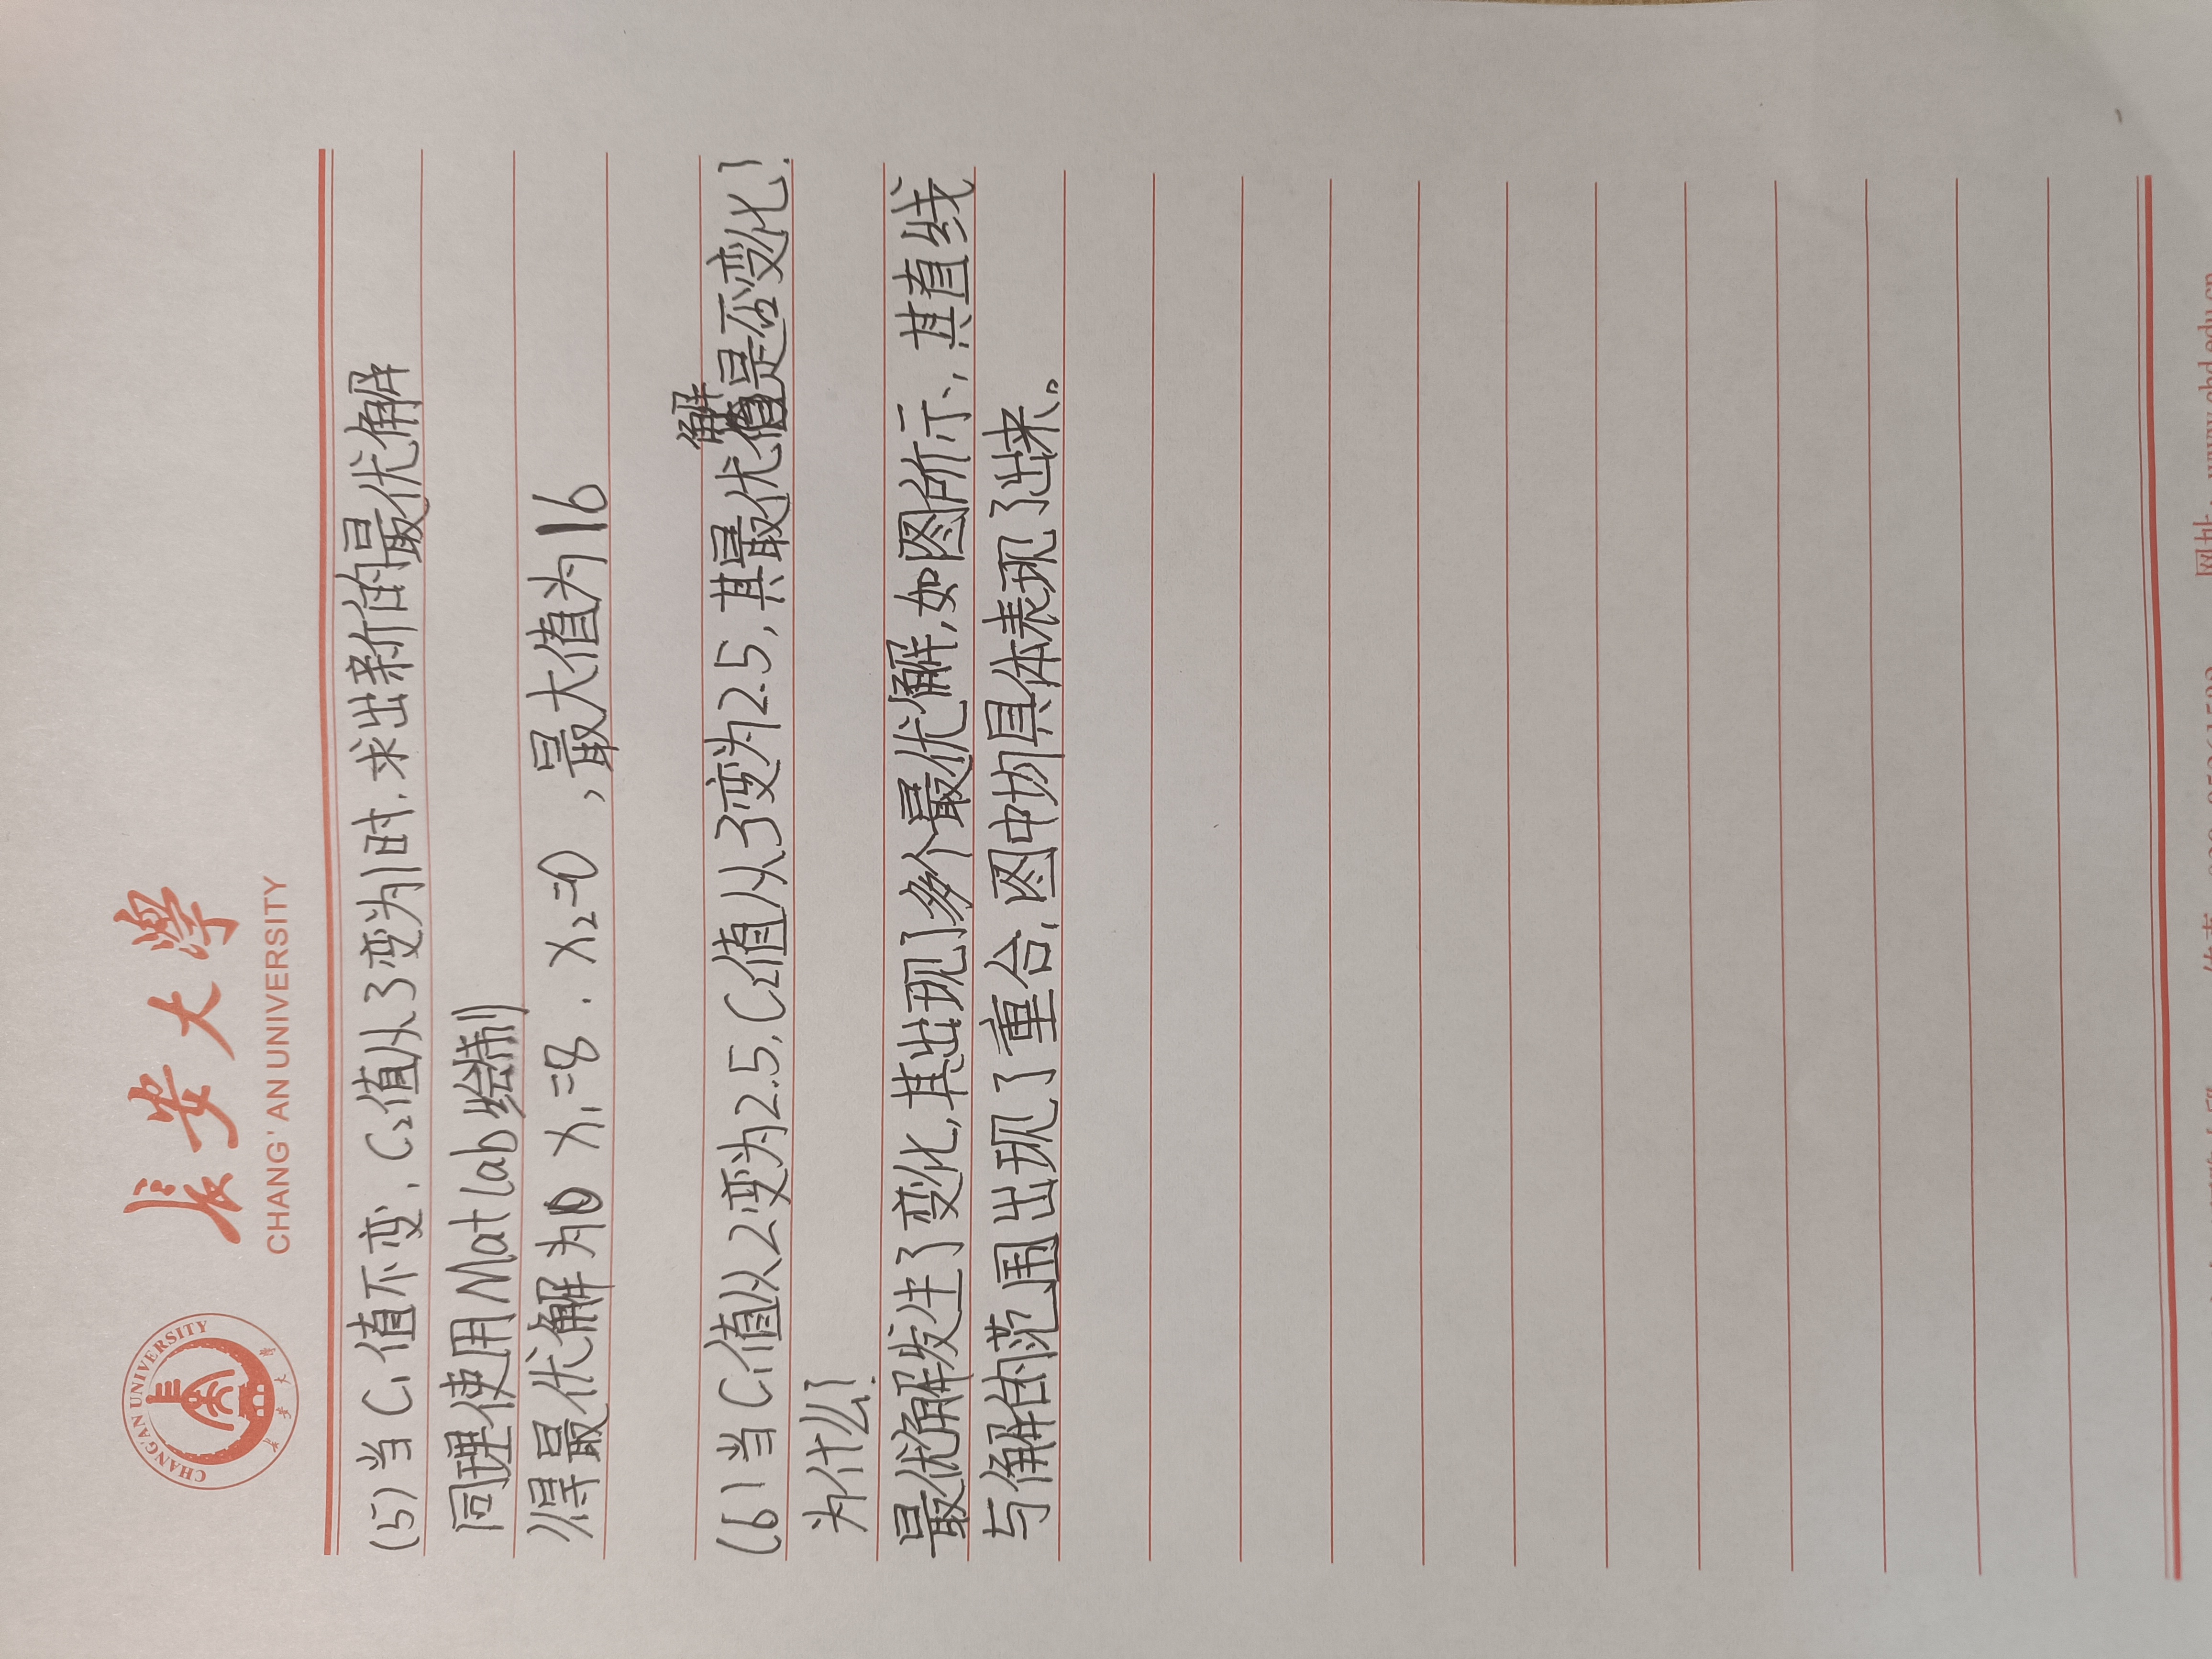 長安大學
CHANG'AN UNIVERSITY
CHANG'AN UNIVERSITY
(5)当C₁值不变，C₂值从3变为1时，求出新的最优解
同理使用Matlab绘制
得最优解为 x₁=8，x₂=0，最大值为16
(6)当C₁值从2变为2.5，C₂值从3变为2.5，其最优解是否变化？
为什么？
最优解发生了变化，其出现了多个最优解，如图所示，其直线
与解的范围出现了重合，图中均具体表现了出来。
网址：www.chd.edu.cn